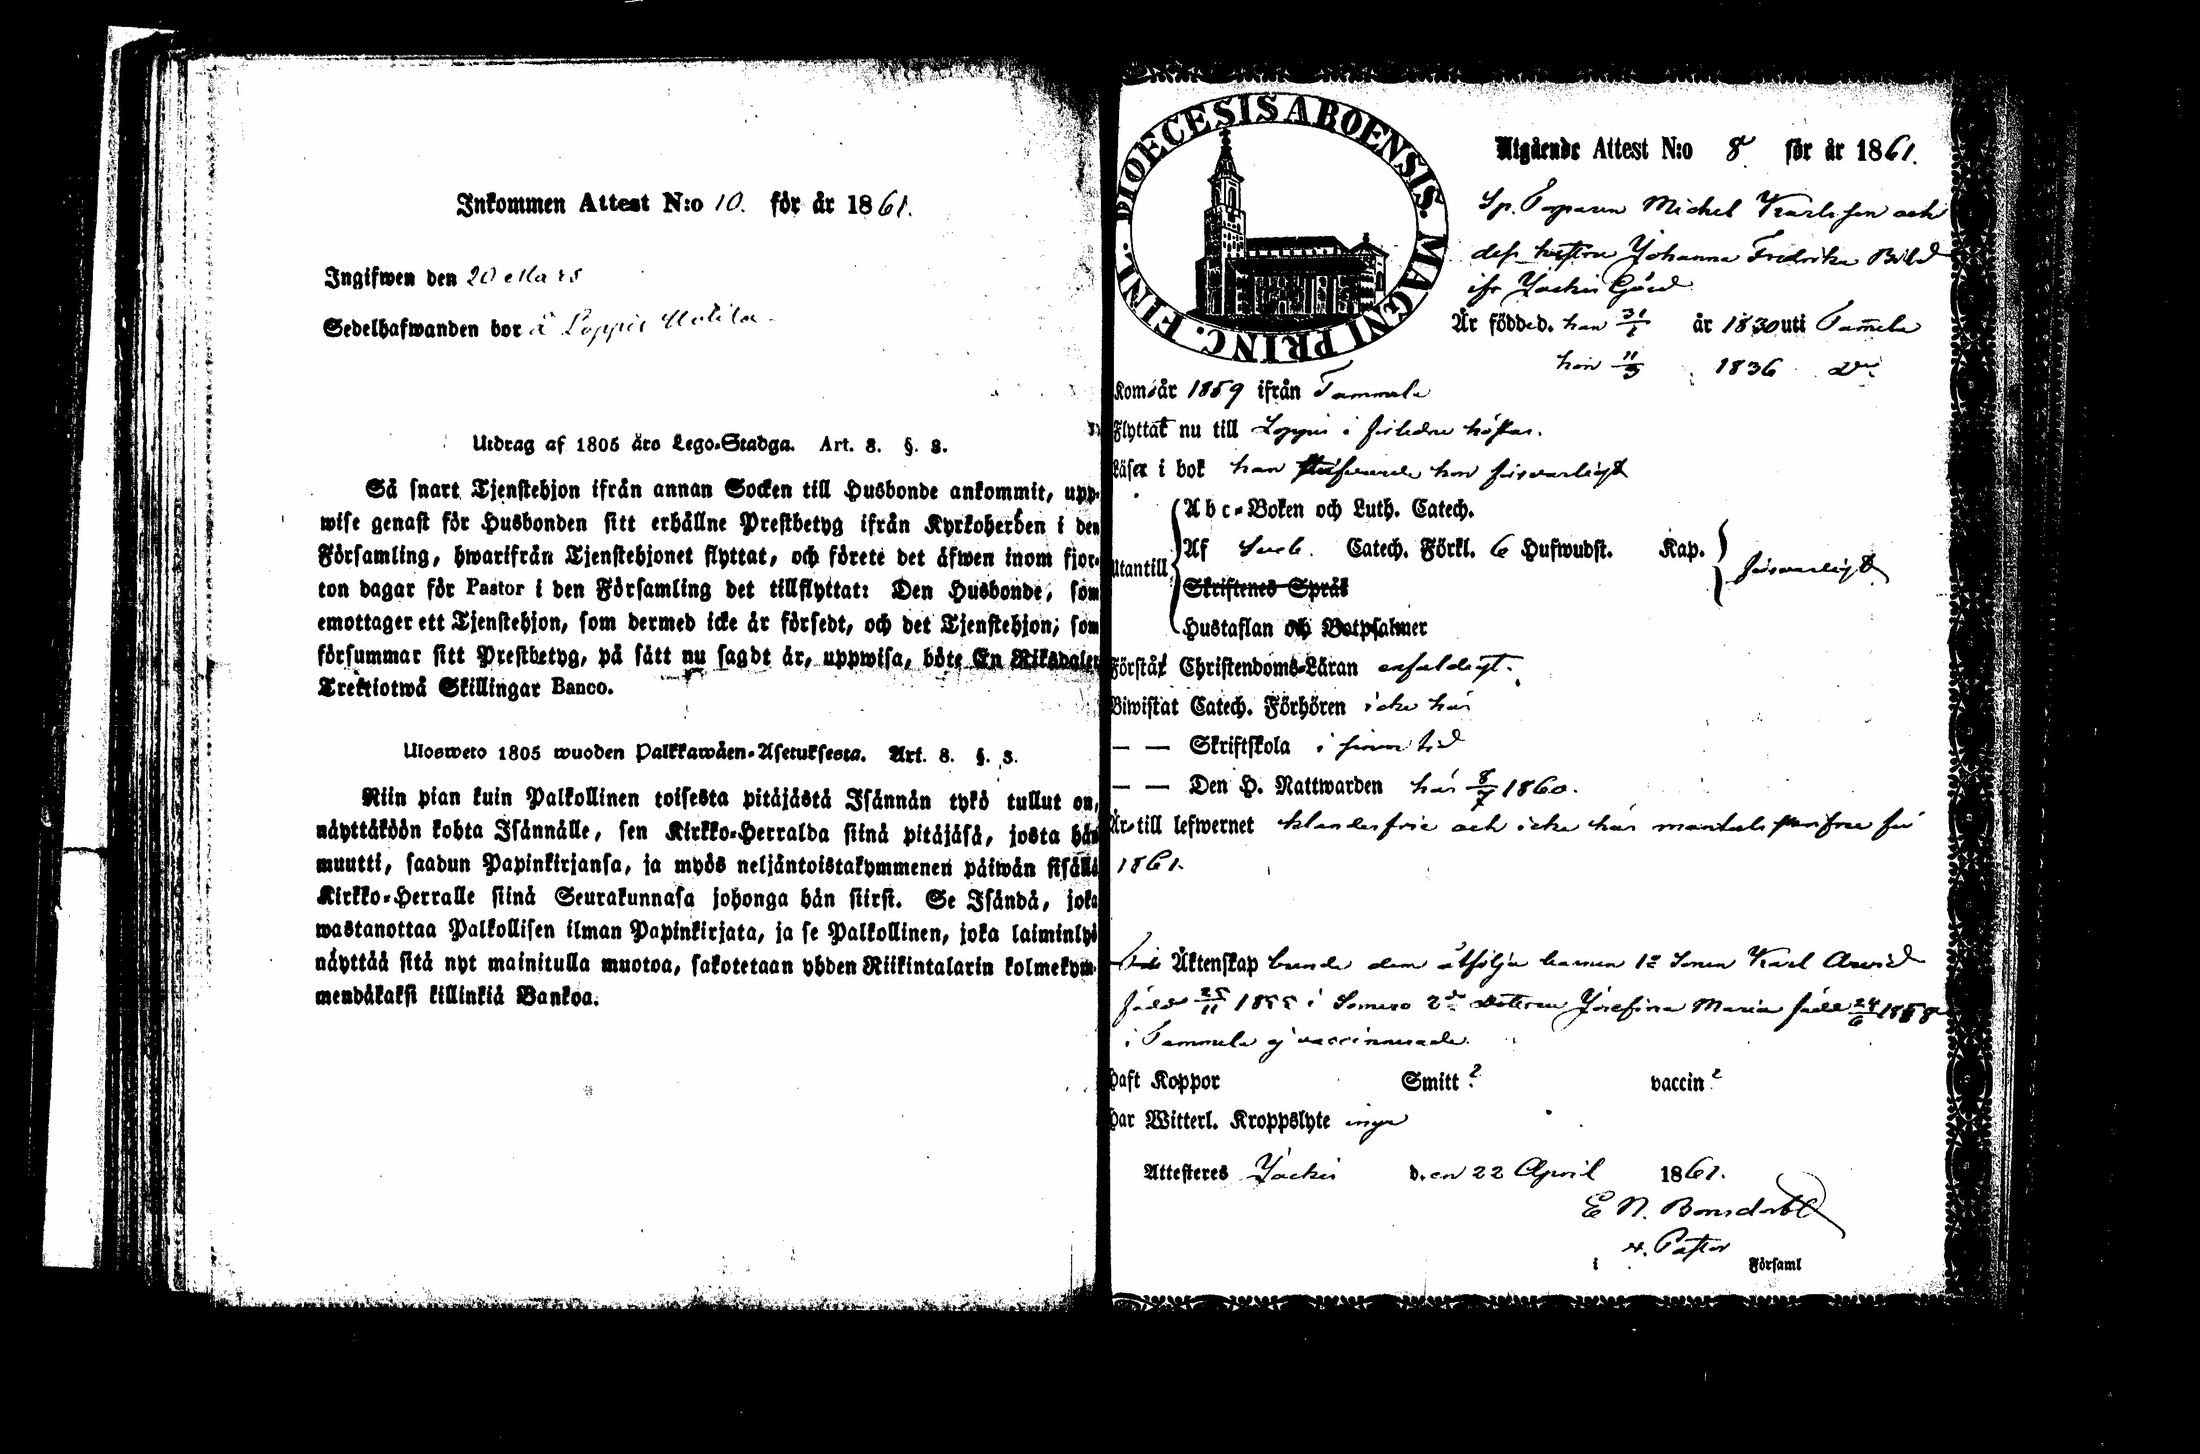 Inkommen Attest N:o 10. för år 1861.
Ingifwen den 20 Mars
Sedelhafwanden bor å Loppis
Utdrag af 1805 års Lego-Stadga. Art. 8. §. 3.
Så snart Tjenstehjon ifrån annan Socken till Husbonde ankommit, upp-
wise genast för Husbonden sitt erhållne Prestbetyg ifrån Kyrkoherden i den
Församling, hwarifrån Tjenstehjonet flyttat, och förete det äfwen inom fjor-
ton dagar för Pastor i den Församling det tillflyttat: Den Husbonde, som
emottager ett Tjenstehjon, som dermed icke är försedt, och det Tjenstehjon, som
försummar sitt Prestbetyg, på sätt nu sagdt är, uppwisa, böte En Riksdaler
Trettiotwå Skillingar Banco.
Ulosweto 1805 wuoden Palkkawäen-Asetuksesta. Art. 8. §. 3.
Niin pian kuin Palkollinen toisesta pitäjästä Isännän tykö tullut on,
näyttäköön kohta Isännälle, sen Kirkko-Herralda siinä pitäjäsä, josta hän
muutti, saadun Papinkirjansa, ja myös neljäntoistakymmenen päiwän sisällä
Kirkko-Herralle siinä Seurakunnasa johonga hän siirst. Se Isändä, joka
wastanottaa Palkollisen ilman Papinkirjata, ja se Palkollinen, joka laiminlyö
näyttää sitä nyt mainitulla muotoa, sakotetaan yhden Riikintalarin kolmekym-
mendäkaksi killinkiä Bankoa.
DIOECESIS ABOENSIS. MAGNI PRINC. FINL.
Utgående Attest N:o 8 för år 1861.
Sp. Torparen Michel Karlsson och
dess hustru Johanna Fredrika Bild
ifr Jockis Gård
Är född d. han 31/1 år 1830 uti Tam̄ela
hon 11/3 1836 do
Kom år 1859 ifrån Tammela
Flyttat nu till Loppis i förledne höstas.
Läser i bok han hon försvarligt
Utantill
Abc-Boken och Luth. Catech.
Af Sveb. Catech. Förkl. 6 Hufwudst. Kap. försvarligt
Skriftenes Språk
Hustaflan och Botpsalmer
Förstår Christendoms-Läran enfaldigt.
Biwistat Catech. Förhören icke här
— — Skriftskola i sinom tid
— — Den H. Nattwarden här 8/7 1860.
Är till lefwernet klanderfrie och icke här mantalsskrifne för
1861.
Äktenskap bundne dem åtfölja barnen 1o Sonen Karl Arvid
född 25/11 1855 i Somero 2do Dottren Josefina Maria född 24/6 1858
i Tammela ej vaccinnerade.
Haft Koppor Smitt? vaccin?
Har Witterl. Kroppslyte inga
Attesteres Jockis d. en 22 April 1861.
E N. Bonsdorff
v. Pastor
i Församl